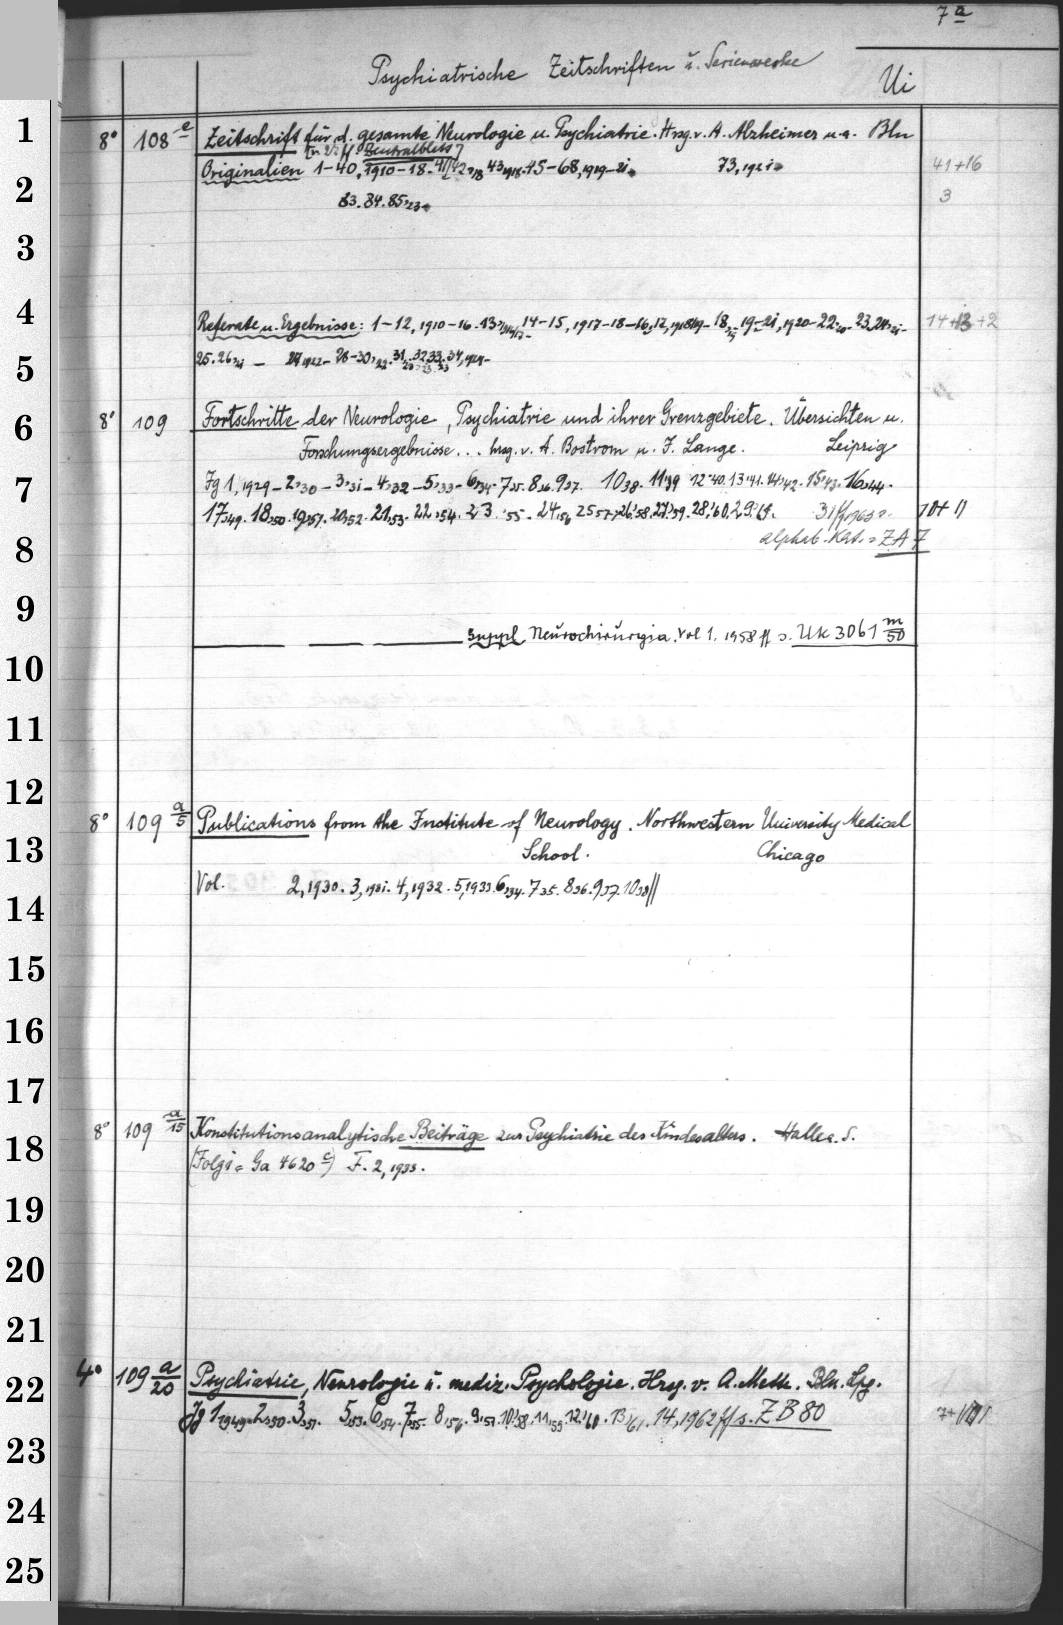 7 a
Psychiatrische Zeitschriften u. Serienwerke Ui
1
8° 108 e Zeitschrift für d. gesamte Neurologie u. Psychiatrie. Hrsg. v. A. Alzheimer u. a. Bln
Originalien 1-40, 1910-18. 43,1918. 45-68, 1919-21. 73, 1921. 41+16
2
83. 84. 85,23. 3
3
4
Referate u. Ergebnisse: 1-12, 1910-16. 14-15, 1917-18 19-21, 1920-22 14+13+2
5
25. 26,21 — 27 1922- 28-30,22. 31. 32 33. 34, 1924-
6
8° 109 Fortschritte der Neurologie, Psychiatrie und ihrer Grenzgebiete. Übersichten u.
Forschungsergebnisse . . . hrsg. v. A. Bostroem u. J. Lange. Leipzig
7
Jg 1, 1929 - 2,30 - 3,31 - 4,32 - 5,33 - 6,34 - 7,35. 8,36. 9,37. 10,38. 11,39 12'40. 13'41. 14,42. 15,43. 16,44.
17,49. 18,50. 19,51. 20,52. 21,53. 22,54. 23,'55. 24,56 25,57. 26,'58. 27,'59. 28,'60, 29,'61. 31ff,1963 s. 10+11
8
alphab. Kat. = ZA 7
9
Suppl. Neurochirurgia. Vol 1. 1958 ff s. Uk 3061 m/50
10
11
12
8° 109 a/5 Publications from the Institute of Neurology. Northwestern University Medical
13
School. Chicago
14
Vol. 2, 1930. 3, 1931. 4, 1932. 5, 1933. 6,34. 7,35. 8,36. 9,37. 10,38 //
15
16
17
8° 109 a/15 Konstitutionsanalytische Beiträge zur Psychiatrie des Kindesalters. Halle a. S.
18
(Folge = Ga 4620 c) F. 2, 1933.
19
20
21
4° 109 a/20 Psychiatrie, Neurologie u. mediz. Psychologie. Hrsg. v. A. Mette. Bln. Lpg.
22
Jg 1,1949. 2,50. 3,51. 5,53. 6,54. 7,55. 8,56. 9,57. 10,58. 11,59. 12,'60. 13,'61. 14, 1962 ff s. ZB 80
23
24
25